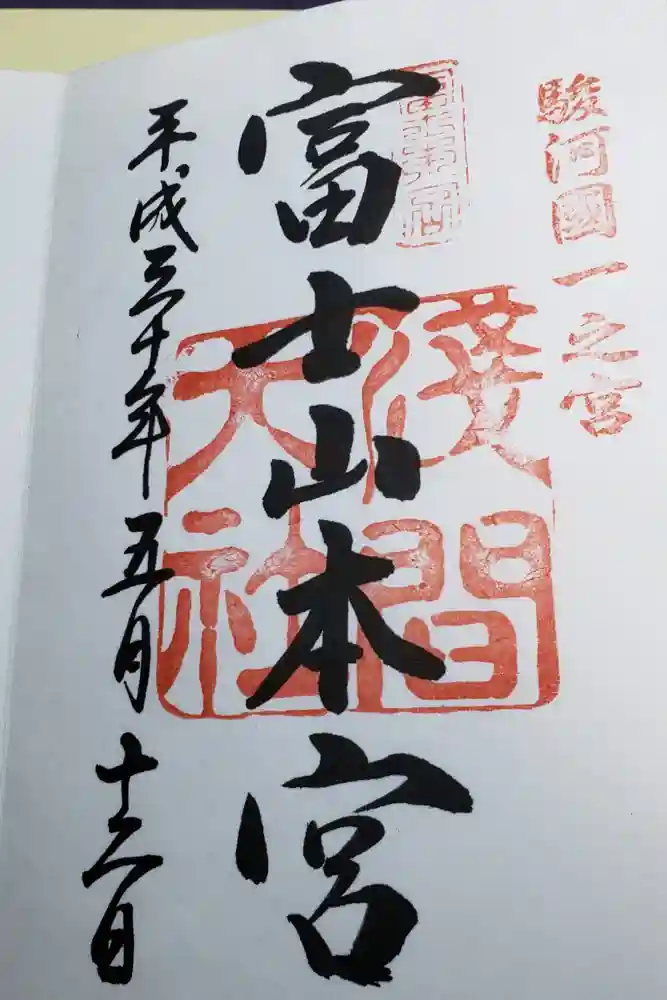 駿河國一之宮
富士山本宮
淺間
大社
平成三十年五月十二日